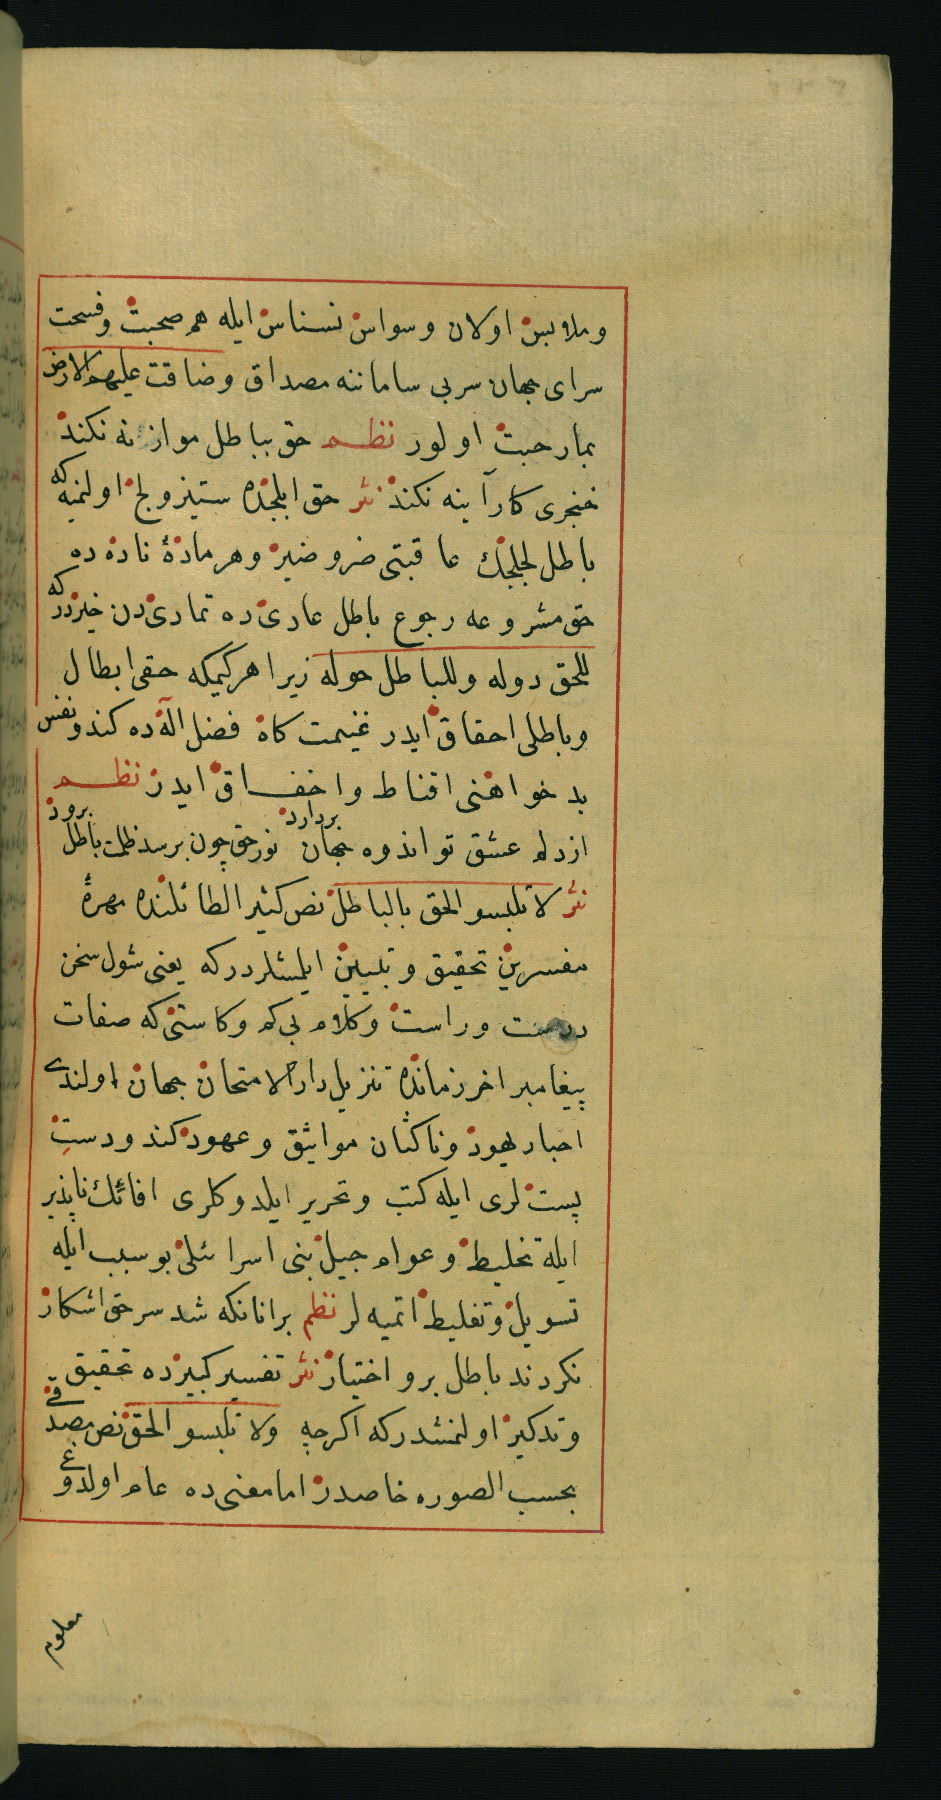 وملابس اولان وسواس نسناس ايله هم صحبت وفسحت
سراى جهان سربى سامانه مصداق وضاقت عليهم الارض
بمارحبت اولور نظم حق بباطل موازنه نكند
خنجرى كار آينه نكند نثر حق ايلجنده ستيز ولج اولنميه كه
باطل لجلجك عاقبتى ضر وضير وهر مادۀ ناده ده
حق مشروعه رجوع باطل عادىده تمادىدن خيردر كه
للحق دوله وللباطل حوله زيرا هركيمكه حقى ابطال
وباطلى احقاق ايدر غنيمت كاه فضل آلهده كند ونفس
بد خواهنى اقناط واخفاق ايدر نظم
از دلم عشق تو اندوه جهان بردارد نور حق چون برسد ظلمت باطل برود
نثر لا تلبسو الحق بالباطل نص كثير الطائلنده مهرۀ
مفسرين تحقيق وتبيين ايلمشلردر كه يعنى شول سخن
درست وراست وكلام بى كم وكاستى كه صفات
پيغامبر اخر زمانده تنزيل دار الامتحان جهان اولندى
احبار يهود وناكثان مواثيق وعهود كند ودست
پست لرى ايله كتب وتحرير ايلدوكلرى افائك ناپذير
ايله تخليط وعوام جيل بنى اسرائلى بو سبب ايله
تسويل وتغليط اتميه لر نظم برانانكه شد سر حق اشكار
نكردند باطل برو اختيار نثر تفسير كبيرده تحقيق
وتدكير اولنمشدر كه اكرچه ولا تلبسو الحق نص مصدقى
بحسب الصوره خاصدر اما معنىده عام اولدوغى
معلوم